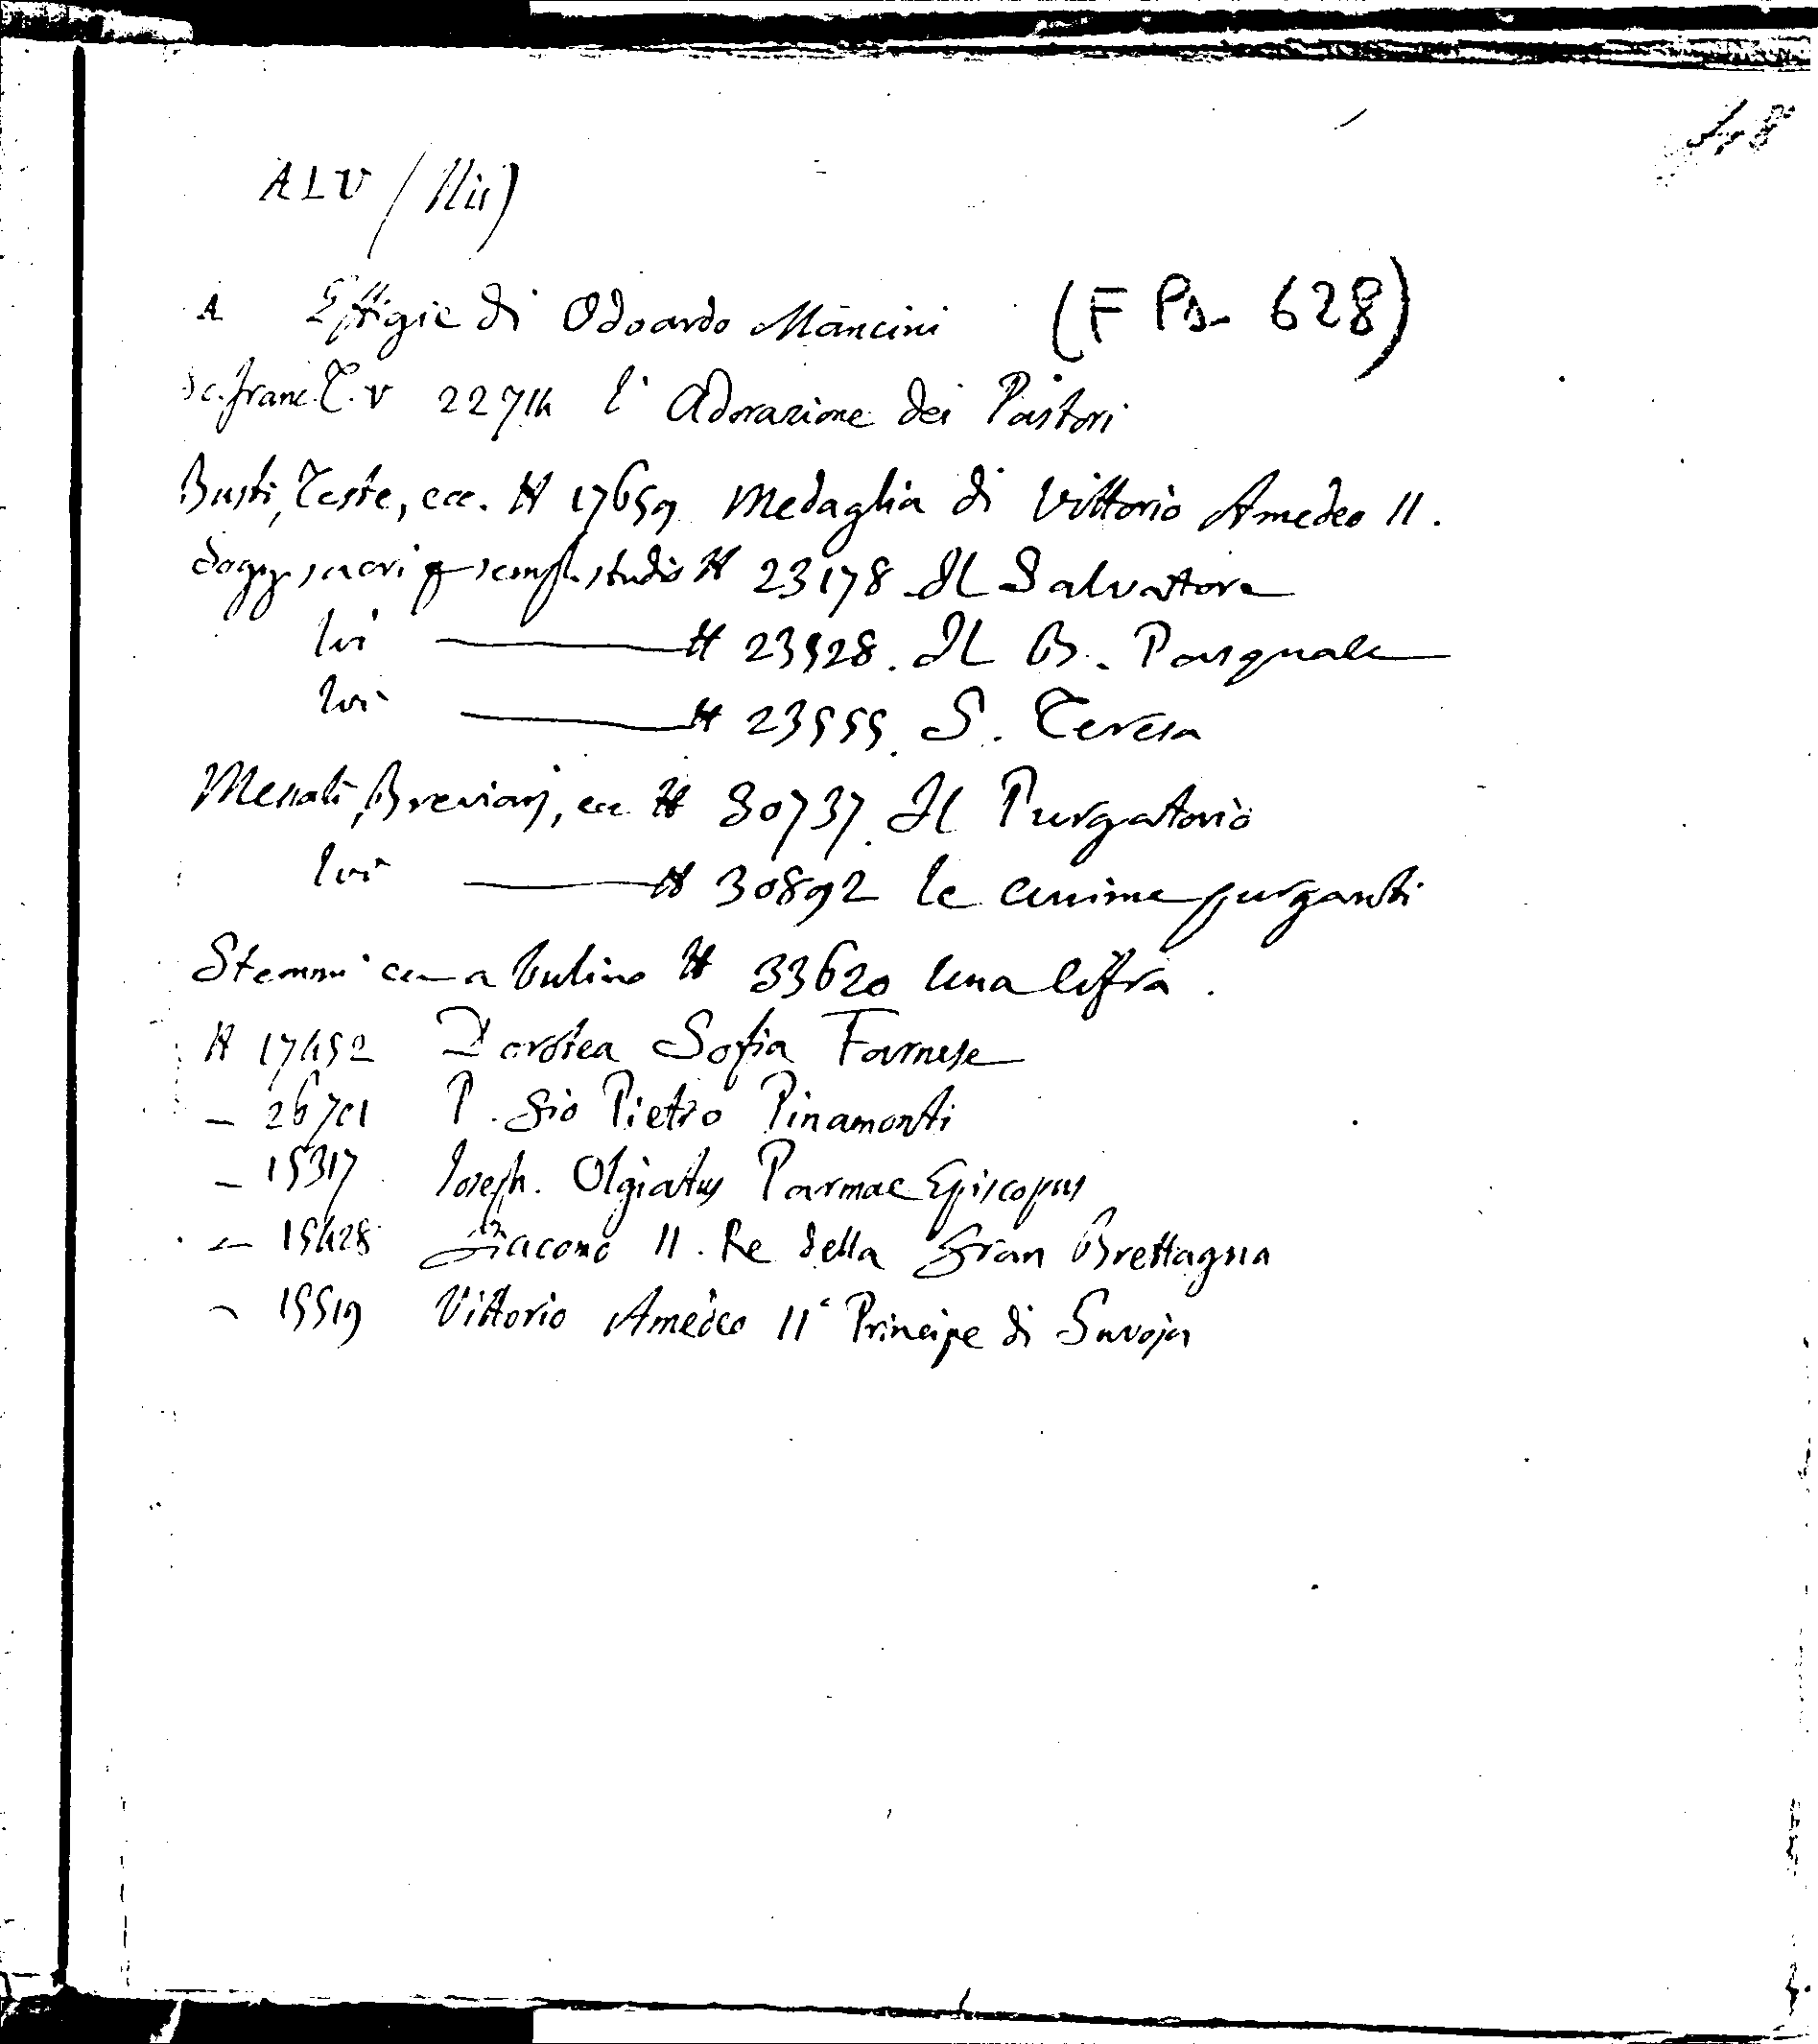 A L V
A Effigie di Odoardo Mancini (F Ps. 628)
Sc. franc. T. V 22714 l' Adorazione dei Pastori
Busti, Teste, ecc. N 17659 Medaglia di Vittorio Amedeo II.
Sogg. sacri studio N 23178 Il Salvatore
Ivi — N 23528. Il B. Pasquale
Ivi — N 23555. S. Teresa
Messali, Breviarj, ecc N 30737. Il Purgatorio
Ivi — N 30892 Le anime purganti
Stemmi a bulino N 33620 Una Cifra.
N 17452 Dorotea Sofia Farnese
— 26701 P. Gio Pietro Pinamonti
— 15317 Joseph. Olgiatus Parmae Episcopus
— 15428 Giacomo II. Re della Gran Brettagna
— 15519 Vittorio Amedeo II° Principe di Savoja